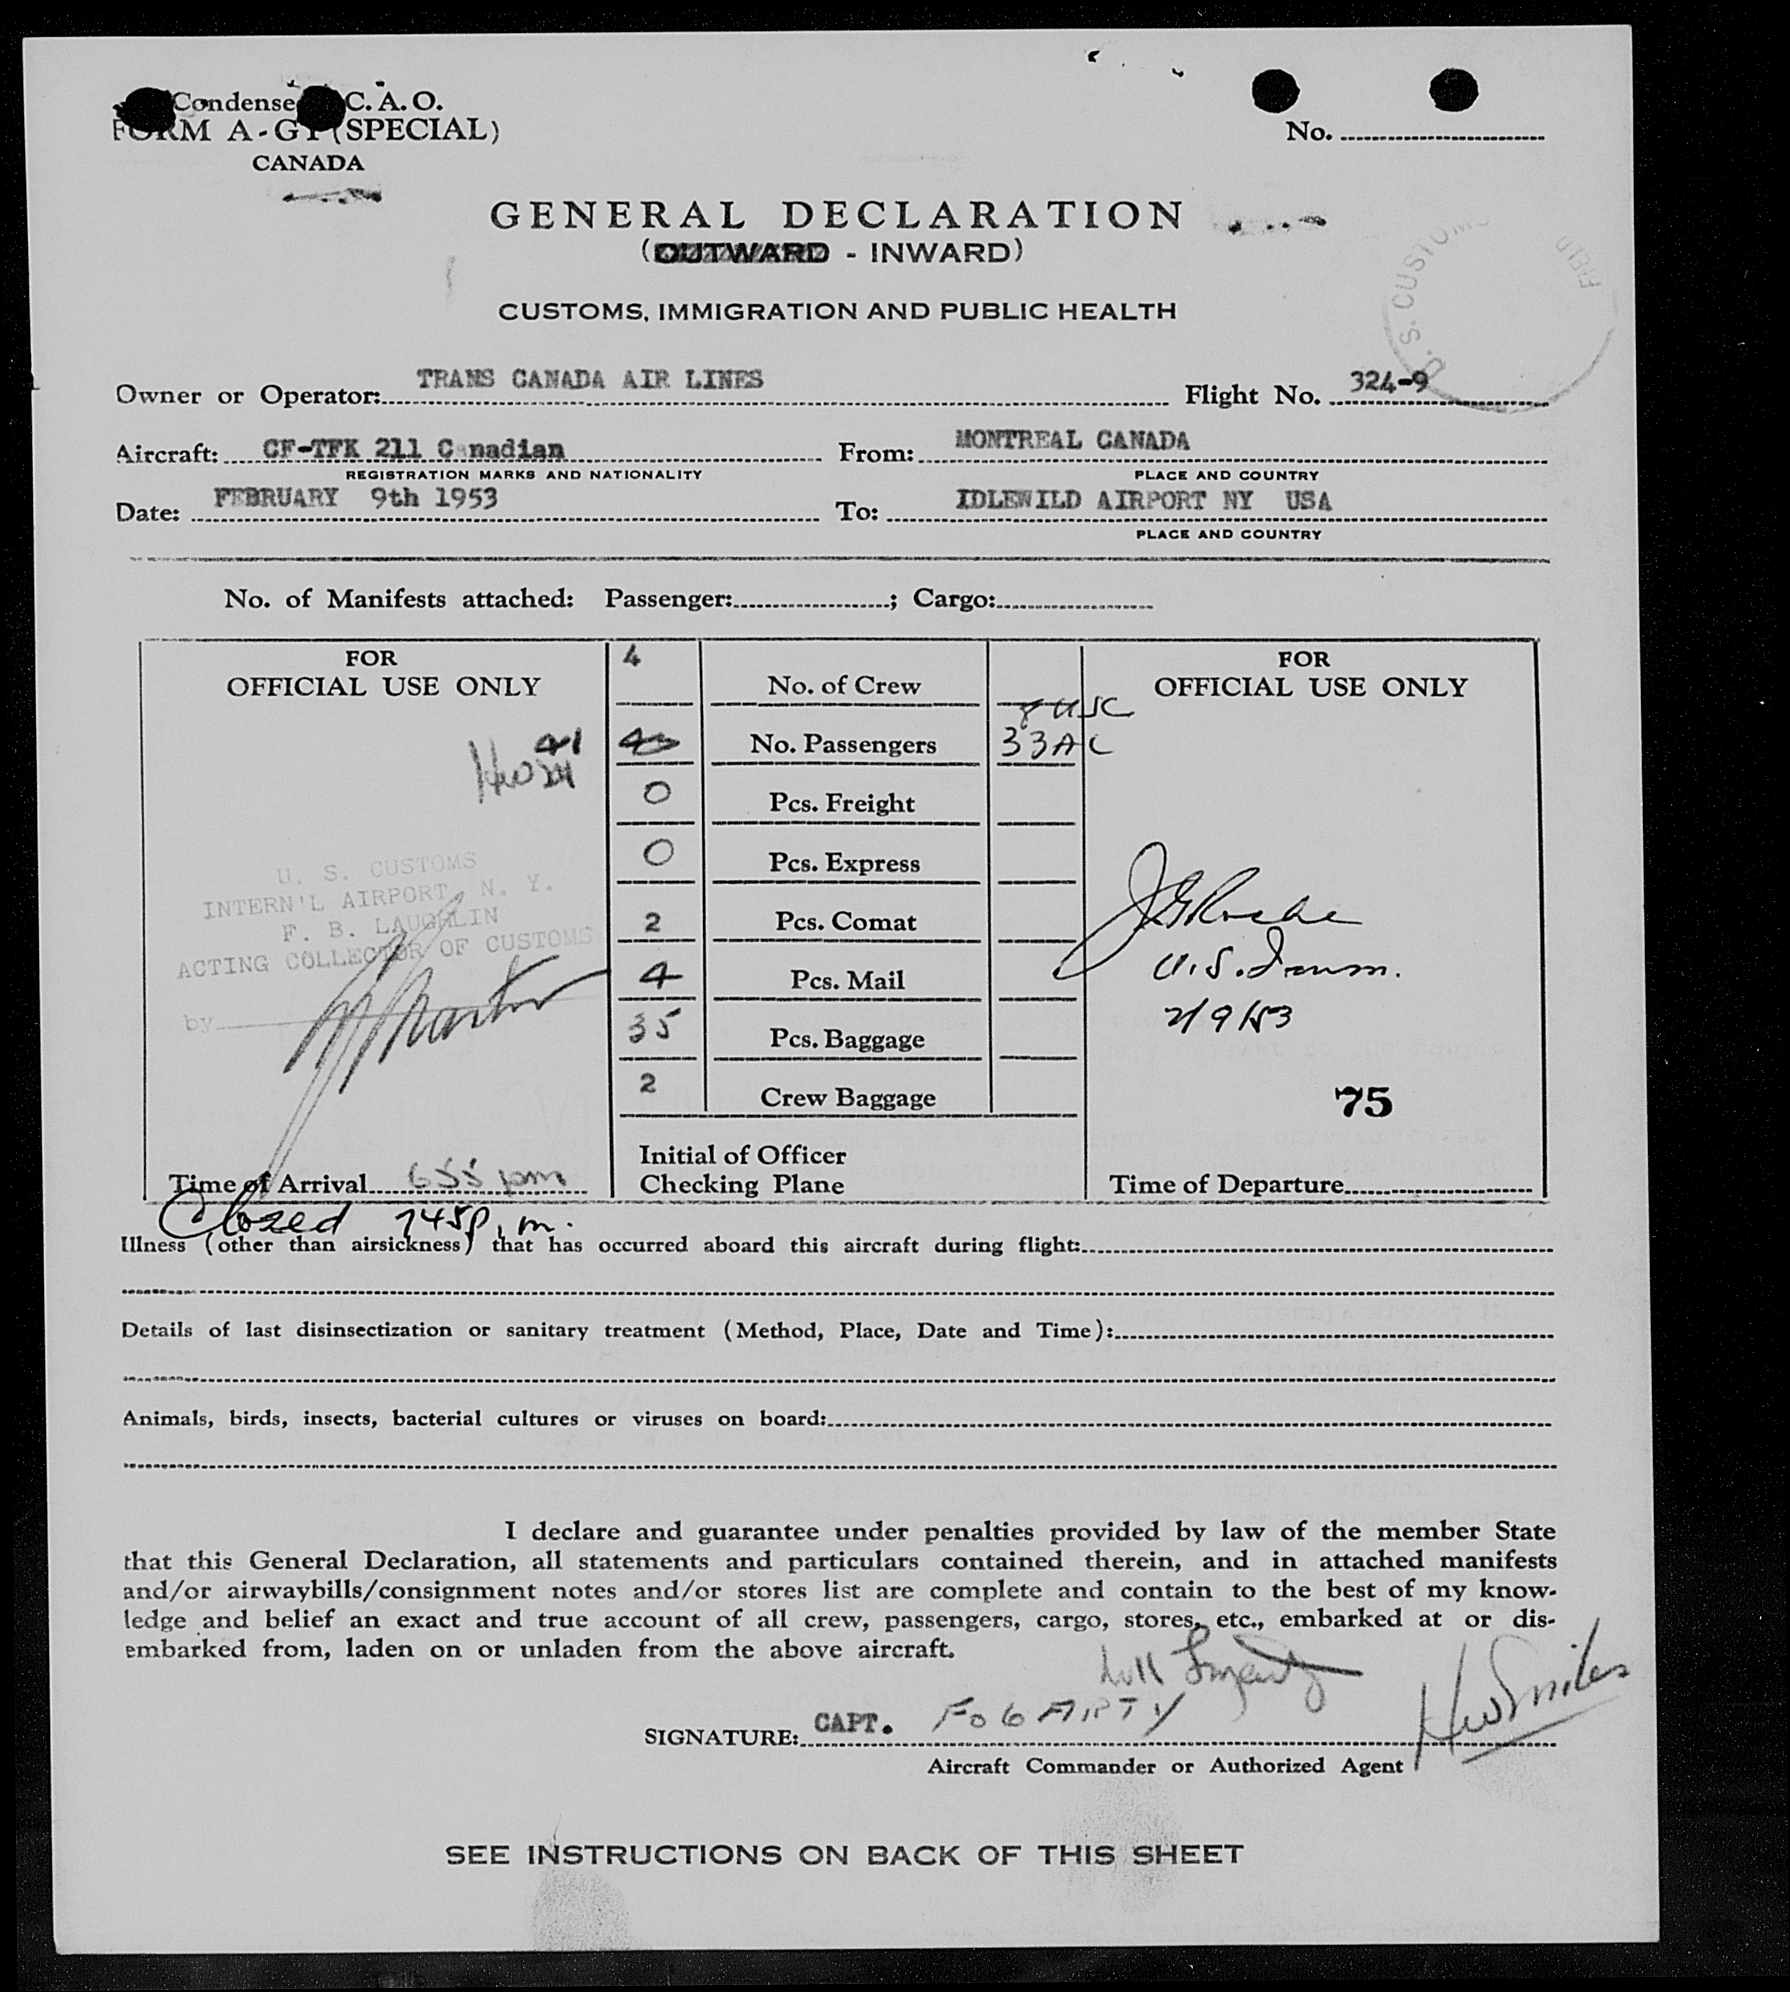 Condense C. A. O.
FORM A-G1 (SPECIAL)
CANADA
No.
GENERAL DECLARATION
(OUTWARD - INWARD)
CUSTOMS, IMMIGRATION AND PUBLIC HEALTH
U. S. CUSTOMS
FIELD
Owner or Operator: TRANS CANADA AIR LINES Flight No. 324-9
Aircraft: CF-TFK 211 C nadian From: MONTREAL CANADA
REGISTRATION MARKS AND NATIONALITY PLACE AND COUNTRY
Date: FEBRUARY 9th 1953 To: IDLEWILD AIRPORT NY USA
PLACE AND COUNTRY
No. of Manifests attached: Passenger: ; Cargo:
FOR
OFFICIAL USE ONLY
41
U. S. CUSTOMS
INTERN'L AIRPORT, N. Y.
F. B. LAUGHLIN
ACTING COLLECTOR OF CUSTOMS
by
Time of Arrival 655 pm
Closed 745 p.m.
4 No. of Crew
8 USC
No. Passengers 33 AC
0 Pcs. Freight
0 Pcs. Express
2 Pcs. Comat
4 Pcs. Mail
35 Pcs. Baggage
2 Crew Baggage
Initial of Officer
Checking Plane
FOR
OFFICIAL USE ONLY
J G Roche
U.S. Imm.
2/9/53
75
Time of Departure
Illness (other than airsickness) that has occurred aboard this aircraft during flight:
Details of last disinsectization or sanitary treatment (Method, Place, Date and Time):
Animals, birds, insects, bacterial cultures or viruses on board:
I declare and guarantee under penalties provided by law of the member State
that this General Declaration, all statements and particulars contained therein, and in attached manifests
and/or airwaybills/consignment notes and/or stores list are complete and contain to the best of my know-
ledge and belief an exact and true account of all crew, passengers, cargo, stores, etc., embarked at or dis-
embarked from, laden on or unladen from the above aircraft.
SIGNATURE: CAPT. FOGARTY HW Smiles
Aircraft Commander or Authorized Agent
SEE INSTRUCTIONS ON BACK OF THIS SHEET